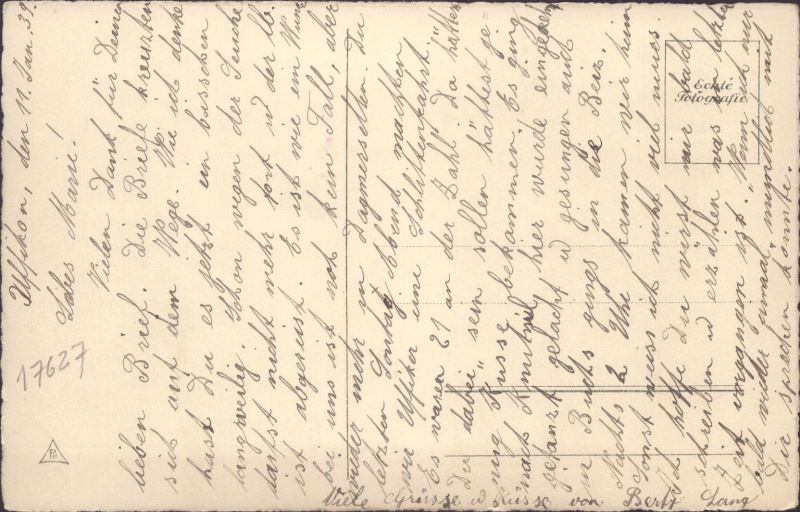 Uffikon, den 11. Jan. 39.
Liebes Marie!
Vielen Dank für Deinen
lieben Brief. Die Briefe kreuzten
sich auf dem Wege. Wie ich denke
hast Du es jetzt ein bisschen
langweilig. Schon wegen der Seuche
darfst nicht mehr fort u der Ob.
ist abgerüst. Es ist wie ein Wunder
bei uns ist noch kein Fall, aber
wieder mehr in Dagmersellen. Du
letzten Sonntag Abend machten
wir Uffiker eine Schlittenfahrt.
Es waren 21 an der Zahl. Da hätten
Du dabei sein sollen hättest ge-
nug Küsse bekommen. Es ging
nach Knutwil, hier wurde eingekehrt
getanzt gelacht u gesungen auch
in Buchs gings in die Beiz.
Nachts 2 Uhr kamen wir heim
Sonst weiss ich nicht viel neues.
Ich hoffe Du wirst mir bald
schreiben u erzählen was letzter
Zeit vorgangen ist. Wenn ich nur
bald wieder einmal mündlich mit
Dir sprechen könnte.
Viele Grüsse u Küsse von Berty Lang
Echte
Fotografie
17627